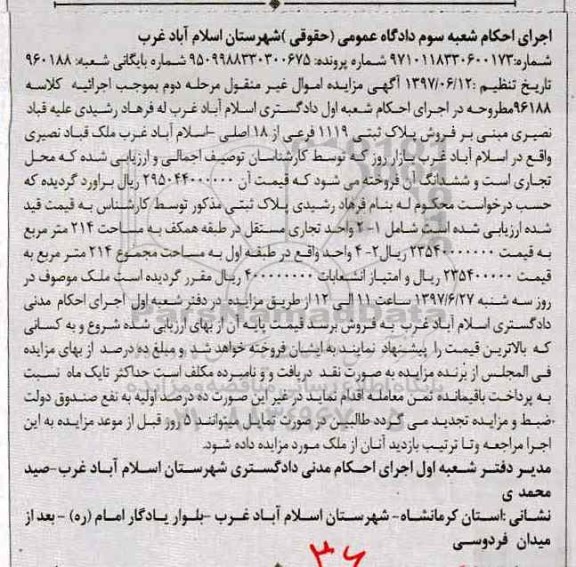 اجرای احکام شعبه سوم دادگاه عمومی (حقوقی )شهرستان اسلام آباد غرب
شماره:۹۷۱۰۱۱۸۳۳۰۶۰۰۱۷۳ شماره پرونده: ۹۵۰۹۹۸۸۳۳۰۳۰۰۶۷۵ شماره بایگانی شعبه: ۹۶۰۱۸۸
تاریخ تنظیم :۱۳۹۷/۰۶/۱۲ آگهی مزایده اموال غیر منقول مرحله دوم بموجب اجرائیه کلاسه
۹۶۱۸۸مطروحه در اجرای احکام شعبه اول دادگستری اسلام آباد غرب له فرهاد رشیدی علیه قباد
نصیری مبنی بر فروش پلاک ثبتی ۱۱۱۹ فرعی از ۱۸ اصلی -اسلام آباد غرب ملک قباد نصیری
واقع در اسلام آباد غرب بازار روز که توسط کارشناسان توصیف اجمالی و ارزیابی شده که محل
تجاری است و ششدانگ آن فروخته می شود که قیمت آن ۲۹۵۰۴۴۰۰۰۰۰۰ ریال براورد گردیده که
حسب درخواست محکوم له بنام فرهاد رشیدی پلاک ثبتی مذکور توسط کارشناس به قیمت قید
شده ارزیابی شده است شامل ۱- ۲ واحد تجاری مستقل در طبقه همکف به مساحت ۲۱۴ متر مربع
به قیمت ۲۳۵۴۰۰۰۰۰۰۰ ریال۲- ۴ واحد واقع در طبقه اول به مساحت مجموع ۲۱۴ متر مربع به
قیمت ۲۳۵۴۰۰۰۰۰ ریال و امتیاز انشعابات ۴۰۰۰۰۰۰۰۰ ریال مقرر گردیده است ملک موصوف در
روز سه شنبه ۱۳۹۷/۶/۲۷ ساعت ۱۱ الی ۱۲ از طریق مزایده در دفتر شعبه اول اجرای احکام مدنی
دادگستری اسلام آباد غرب به فروش برسد قیمت پایه آن از بهای ارزیابی شده شروع و به کسانی
که بالاترین قیمت را پیشنهاد نمایند به ایشان فروخته خواهد شد و مبلغ ده درصد از بهای مزایده
فی المجلس از برنده مزایده به صورت نقد دریافت و و نامبرده مکلف است حداکثر تایک ماه نسبت
به پرداخت باقیمانده ثمن معامله اقدام نماید در غیر این صورت ده درصد اولیه به نفع صندوق دولت
ضبط و مزایده تجدید می گردد طالبین در صورت تمایل میتوانند ۵ روز قبل از موعد مزایده به این
اجرا مراجعه وتا ترتیب بازدید آنان از ملک مورد مزایده داده شود.
مدیر دفتر شعبه اول اجرای احکام مدنی دادگستری شهرستان اسلام آباد غرب-صید
محمد ی
نشانی :استان کرمانشاه- شهرستان اسلام آباد غرب -بلوار یادگار امام (ره) - بعد از
میدان فردوسی
۳۶